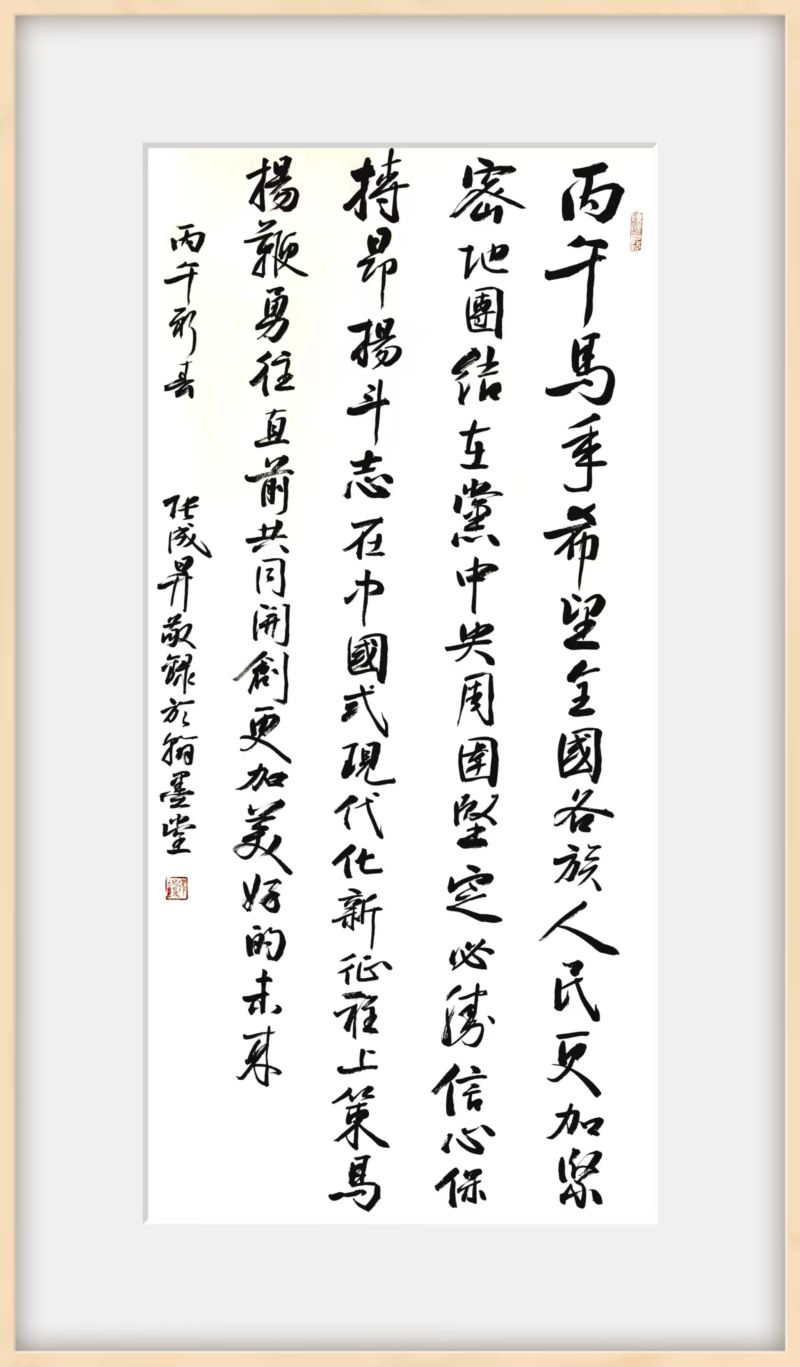 丙午馬年希望全國各族人民更加緊
密地團結在黨中央周圍堅定必勝信心保
持昂揚斗志在中國式現代化新征程上策馬
揚鞭勇往直前共同開創更加美好的未來
丙午新春 張成昇敬録於翰墨堂